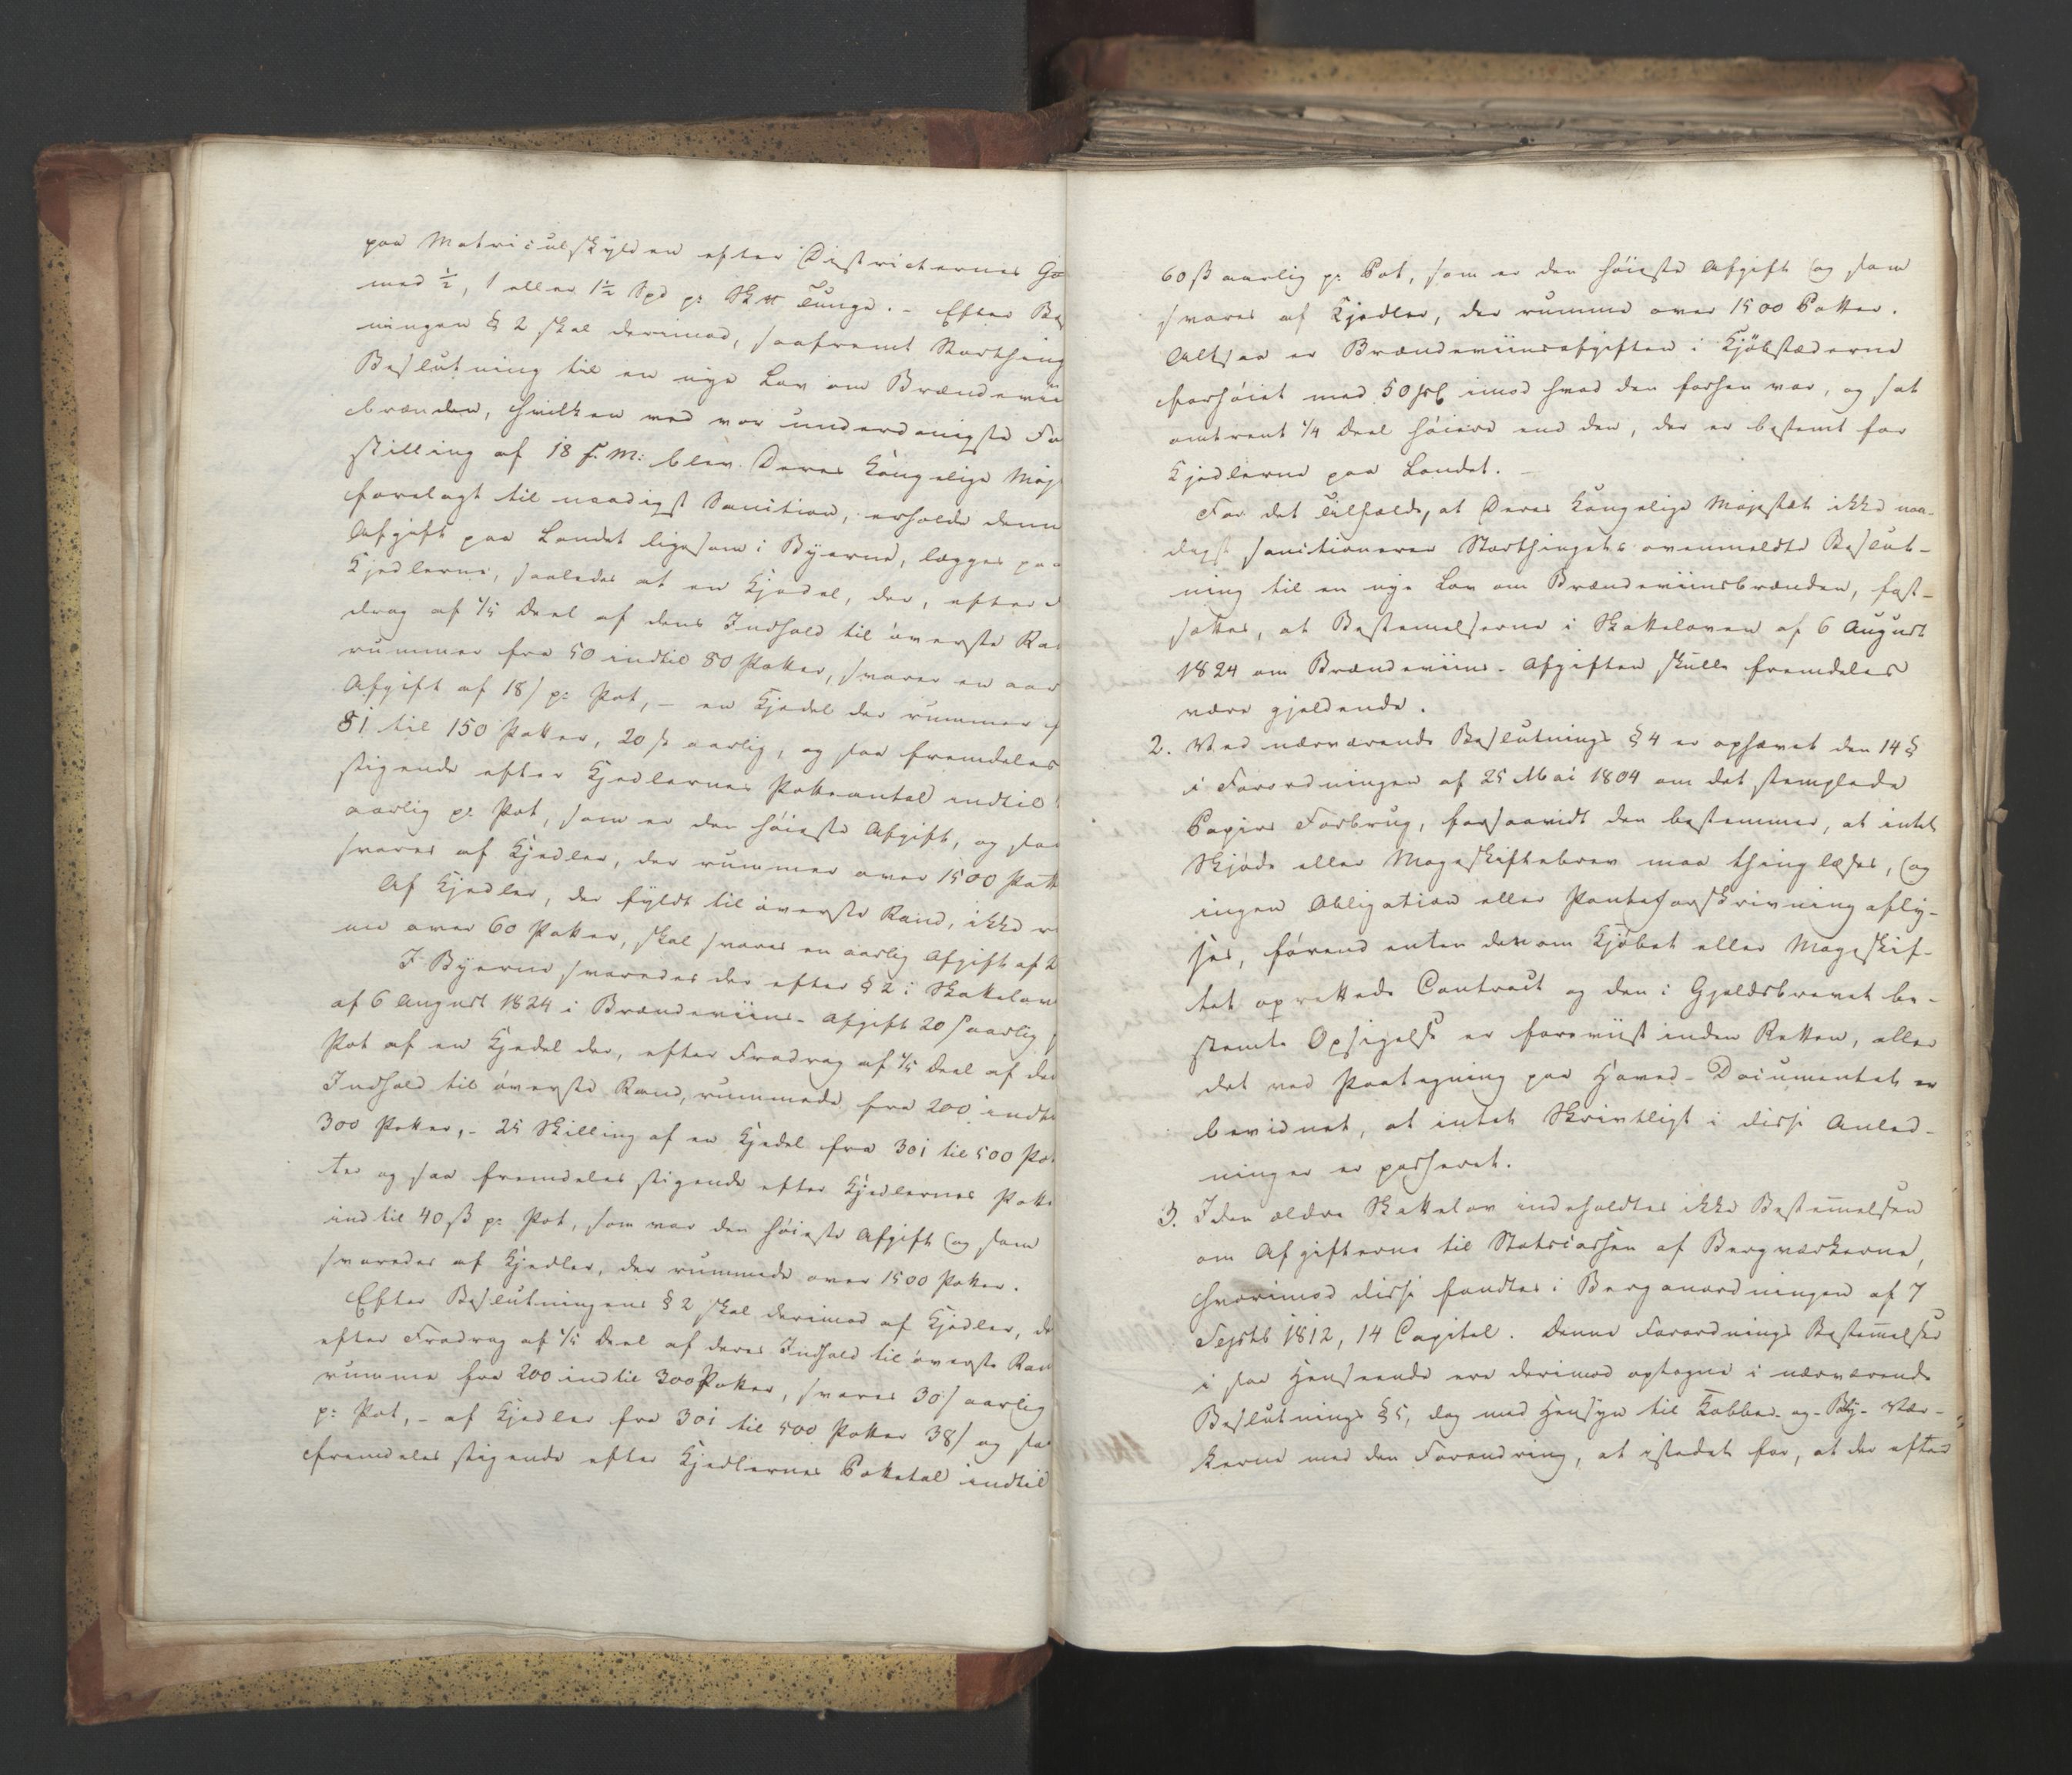 paa Matriculskylden efter Districternes
med ½, 1 eller 1½ Spd pr: Sk℔ Tunge. - Efter Be
ningen § 2 skal derimod, saafremt Storthing
Beslutning til en nye Lov om Brændevii
brænden, hvilken ved vor underdanigste Fo
stilling af 18 f. M: blev Deres Kongelige Maj
forelagt til naadigst Sanction, erholde denn
Afgift paa Landet ligesom i Byerne, lægges paa
Kjedlerne, saaledes at en Kjedel, der, efter
drag af 1/5 Deel af dens Indhold til øverste Ra
rummer fra 50 indtil 80 Potter, svarer en aar
Afgift af 18 s pr: Pot, - en Kjedel der rummer
81 til 150 Potter, 20 s aarlig, og saa fremdeles
stigende efter Kjedlernes Potteantal indtil
aarlig pr: Pot, som er den høieste Afgift, og som
svares af Kjedler, der rummer over 1500 Pott
Af Kjedler, der fyldt til øverste Rand, ikke r
me over 60 Potter, skal svares en aarlig Afgift af 2
I Byerne svaredes der efter § 2 i Skattelov
af 6 August 1824 i Brændeviins-Afgift 20 s aarlig p
Pot af en Kjedel der, efter Fradrag af 1/5 Deel af de
Indhold til øverste Rand, rummede fra 200 indt
300 Potter, - 25 Skilling af en Kjedel fra 301 til 500 Pot
ter og saa fremdeles stigende efter Kjedlernes Potte
indtil 40 ß pr: Pot, som var den høieste Afgift og som
svaredes af Kjedler, der rummede over 1500 Potter.
Efter Beslutningens § 2 skal derimod af Kjedler, de
efter Fradrag af 1/5 Deel af deres Indhold til øverste Ran
rumme fra 200 indtil 300 Potter, svares 30 s aarlig
pr: Pot, - af Kjedler fra 301 til 500 Potter 38 s og saa
fremdeles stigende efter Kjedlernes Pottetal indtil
60 ß aarlig pr: Pot, som er den høieste Afgift og som
svares af Kjedler, der rumme over 1500 Potter.
Altsaa er Brændeviinsafgiften i Kjøbstæderne
forhøiet med 50 prC imod hvad den forhen var, og sat
omtrent 1/4 Deel høiere end den, der er bestemt for
Kjedlerne paa Landet. -
For det Tilfælde, at Deres Kongelige Majestæt ikke naa-
digst sanctionerer Storthingets ovenmeldte Beslut-
ning til en nye Lov om Brændeviinsbrænden, fast-
sættes, at Bestemmelserne i Skatteloven af 6 August
1824 om Brændeviins-Afgiften skulle fremdeles
være gjeldende.
2. Ved nærværende Beslutnings § 4 er ophævet den 14 §
i Forordningen af 25 Mai 1804 om det stemplede
Papirs Forbrug, forsaavidt den bestemmer, at intet
Skjøde eller Mageskiftebrev maa thinglæses, og
ingen Obligation eller Panteforskrivning afly-
ses, førend enten den om Kjøbet eller Mageskif-
tet oprettede Contract og den i Gjeldsbrevet be-
stemte Opsigelse er foreviist inden Retten, eller
det ved Paategning paa Hoved-Documentet er
bevidnet, at intet Skrivtligt i disse Anled-
ninger er passeret.
3. I den ældre Skattelov indeholdtes ikke Bestemmelsen
om Afgifterne til Statscassen af Bergværkerne,
hvorimod disse fandtes i Berganordningen af 7
Septbr 1812, 14 Capitel. Denne Forordnings Bestemmelser
i saa Henseende ere derimod optagne i nærværende
Beslutnings § 5, dog med Hensyn til Kobber- og Bly-Vær-
kerne med den Forandring, at istedet for, at der efter